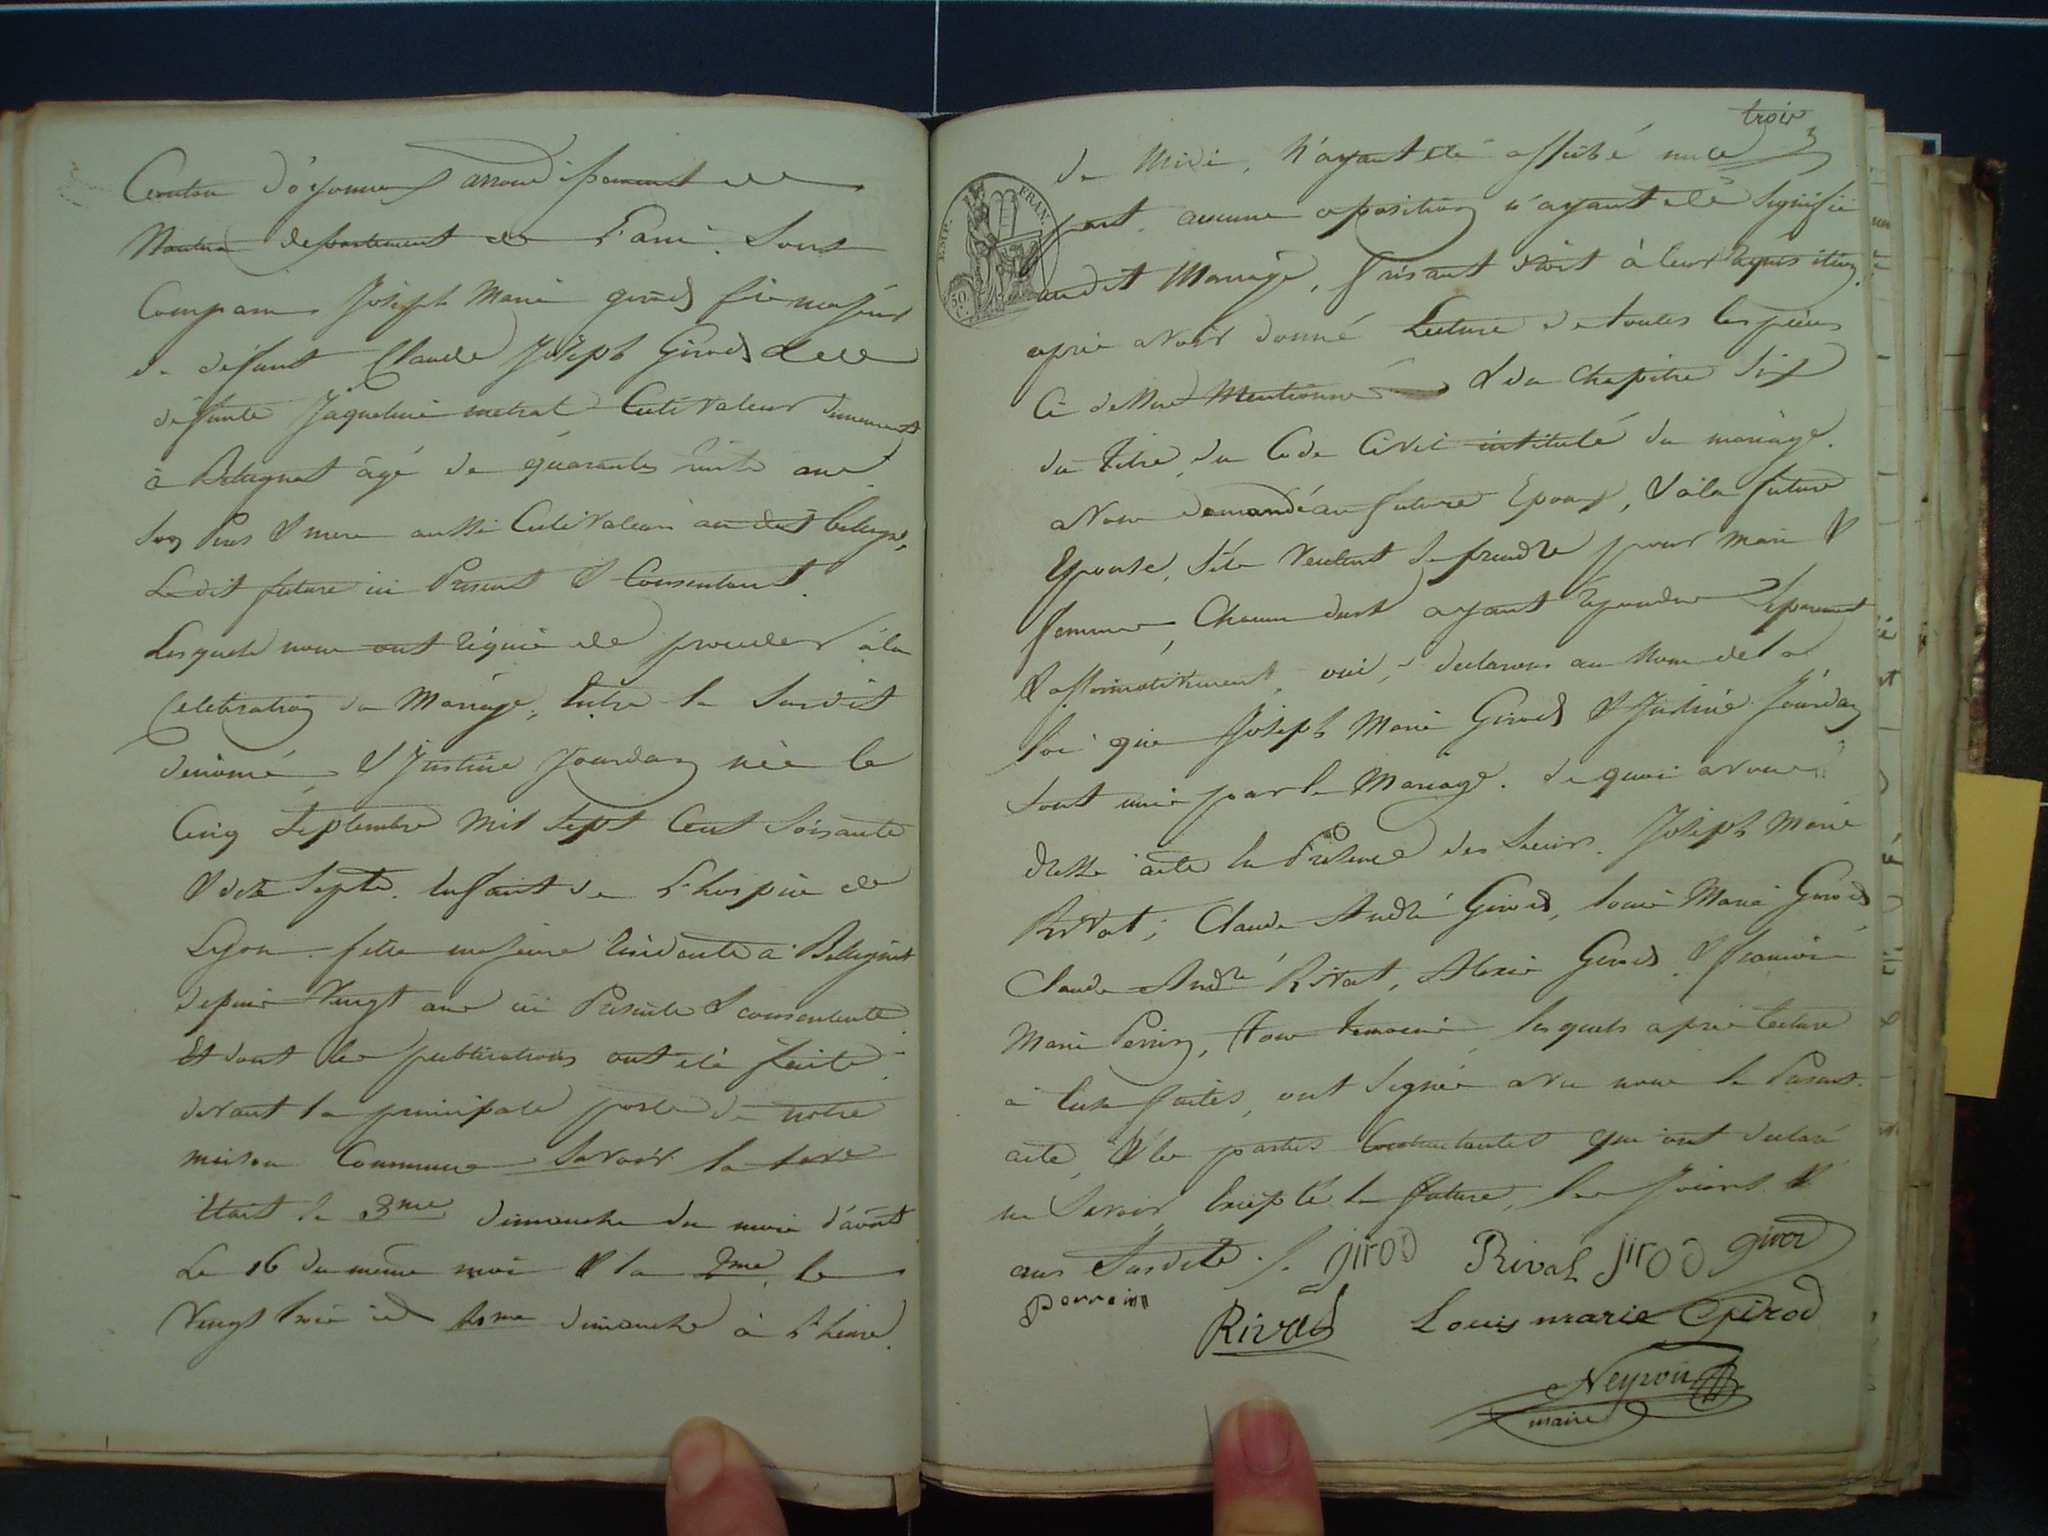 Canton d'oyonnax arrondissement de
Nantua département de l'ain. Sont
Comparus Joseph Marie girod fis majeur
de défunt Claude Joseph Girod & de
défunte Jaqueline metral Cultivateur demeurant
à Belignat âgé de quarante huit ans
Ses Pere & mere aussi Cultivateurs au dit belignat,
Le dit future ici Present & Consentant.
Lesquels nous ont réquis de proceder à la
Celebration du Mariage, Entre le Susdit
denomé, & Justine Jourdan née le
Cinq Septembre Mil Sept Cent Soisante
& dix Sept. Enfant de L'hospice de
Lyon fille majeure résidante à Belignat
depuis Vingt ans ici Présente & consentente
Et dont les publications ont été faite
devant la principale porte de notre
maison Commune Savoir la 1ere
était le 3me dimanche du mois d'août
Le 16 du même mois & la 2me le
Vingt trois id 4me dimanche à l'heure
trois
3
de Midi, N'ayant été
fait, aucune oposition n'ayant été Signifié
EMP. FRAN.
50 C.
audit Mariage, faisant droit à leur réquisition
après avoir donné Lecture de toutes les pièces
Ci dessus Mentionné & du chapitre Six
du titre du Code Civil intitulé du mariage.
avons demandé au future Epoux, & à la future
Epouse, s'ils veulent se prendre pour mari &
femme, Chacun d'eux ayant repondu Séparement
& affirmativement, oui, declarons au Nom de la
loi que Joseph Marie Girod & Justine Jourdan
sont unis par le Mariage. de quoi avons
dressé acte En Présence des Sieurs. Joseph Marie
Rivat, Claude André Girod, Louis Marie Girod
Claude André Rivat, Alexis Girod & francois
Marie Perrin, tous temoins, lesquels après lecture
à Eux faites, ont Signés avec nous le Present
acte, & les parties Contractantes qui ont declaré
ne Savoir, Excepté le future, les Jours &
ans Susdits. J. girod Rival girod girod
perrein
Rival Louis marie Girod
Neyron
maire